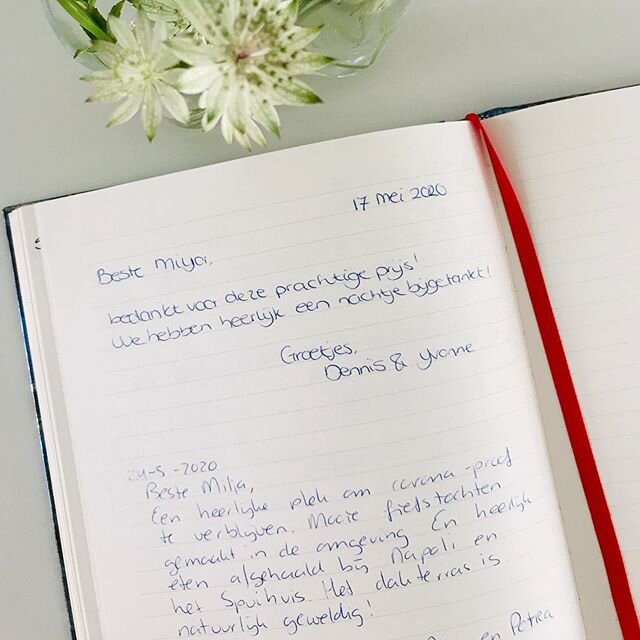 17 mei 2020
Beste Milja,
bedankt voor deze prachtige prijs!
We hebben heerlijk een nachtje bijgetankt!
Groetjes,
Dennis & Yvonne
24-5-2020
Beste Milja,
Een heerlijke plek om corona-proof
te verblijven. Mooie fietstochten
gemaakt in de omgeving. En heerlijk
eten afgehaald bij Napoli en
het Spuihuis. Het dakterras is
natuurlijk geweldig!
en Petra